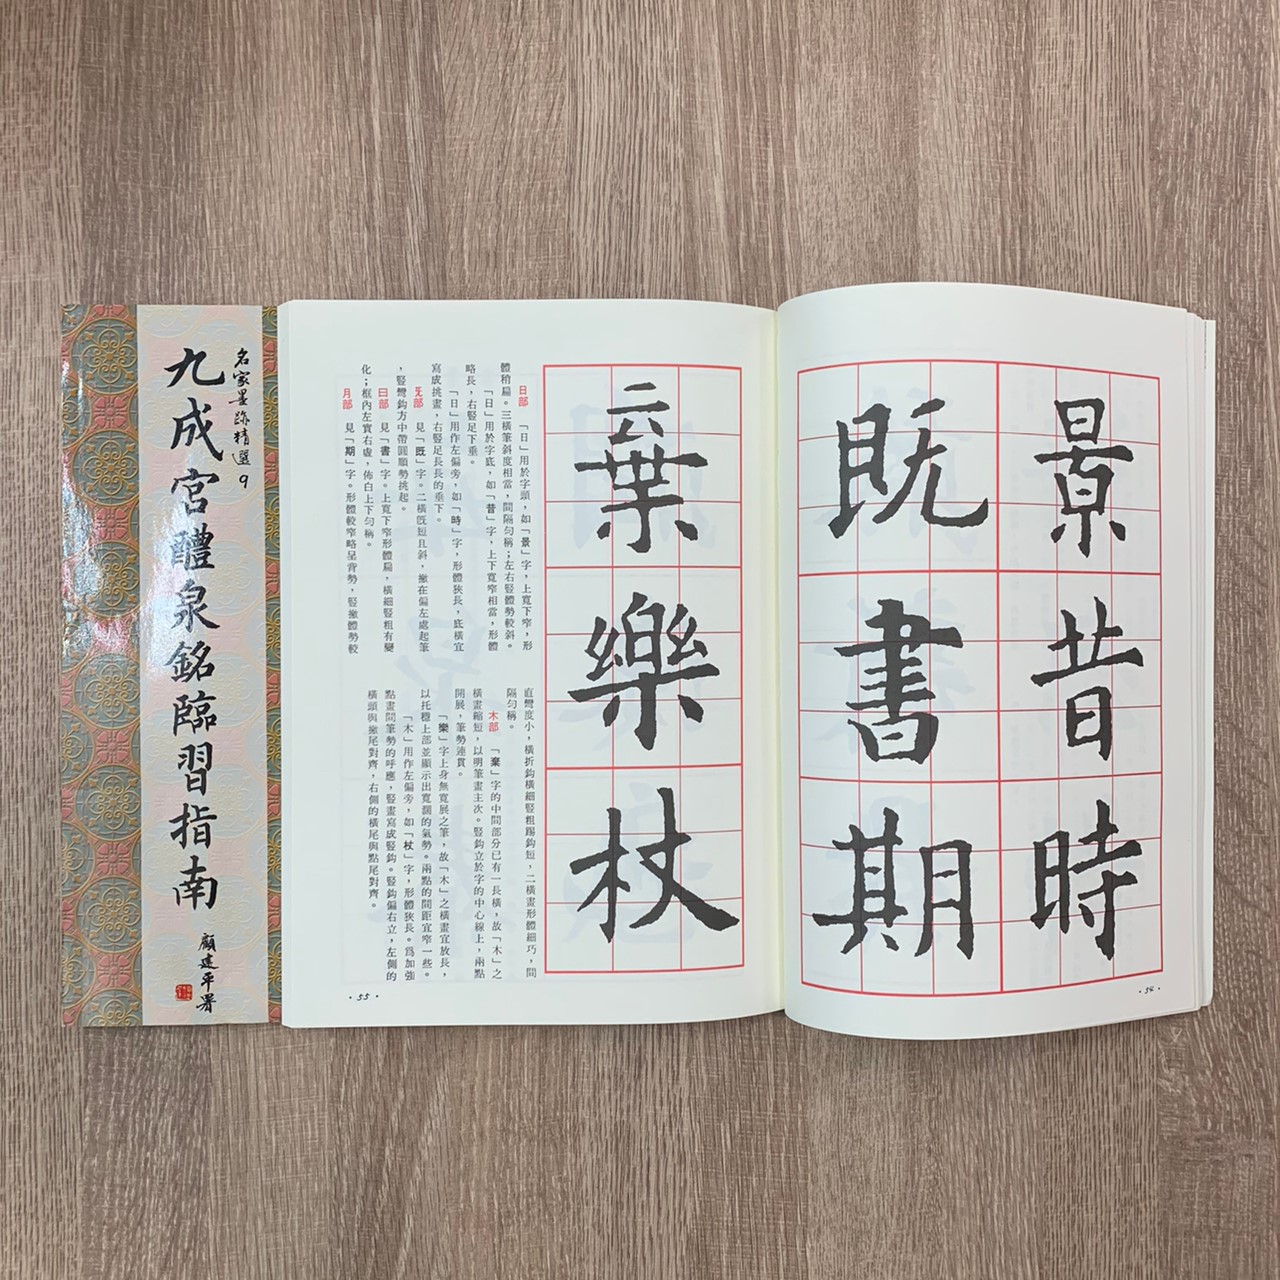 名家墨跡精選9
九成宮醴泉銘臨習指南
顧建平署
景昔時
既書期
·54·
棄樂杖
日部 「日」用於字頭，如「景」字，上寬下窄，形
體稍扁。三橫筆斜度相當，間隔勻稱；左右竪體勢較斜。
「日」用於字底，如「昔」字，上下寬窄相當，形體
略長，右竪足下垂。
「日」用作左偏旁，如「時」字，形體狹長，底橫宜
寫成挑畫，右竪足長長的垂下。
旡部 見「既」字。二橫既短且斜，撇在偏左處起筆
，竪彎鈎方中帶圓順勢挑起。
曰部 見「書」字。上寬下窄形體扁，橫細竪粗有變
化；框內左實右虛，佈白上下勻稱。
月部 見「期」字。形體較窄略呈背勢，竪撇體勢較
直彎度小，橫折鈎橫細竪粗踢鈎短，二橫畫形體細巧，間
隔勻稱。
木部 「棄」字的中間部分已有一長橫，故「木」之
橫畫縮短，以明筆畫主次。竪鈎立於字的中心線上，兩點
開展，筆勢連貫。
「樂」字上身無寬展之筆，故「木」之橫畫宜放長，
以托穩上部並顯示出寬濶的氣勢。兩點的間距宜窄一些。
「木」用作左偏旁，如「杖」字，形體狹長。爲加強
點畫間筆勢的呼應，竪畫寫成竪鈎。竪鈎偏右立，左側的
橫頭與撇尾對齊，右側的橫尾與點尾對齊。
·55·